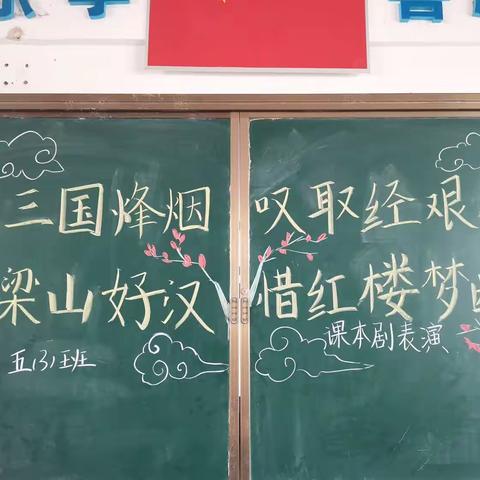 三国烽烟 叹取经艰
梁山好汉 惜红楼梦
五(3)班
课本剧表演